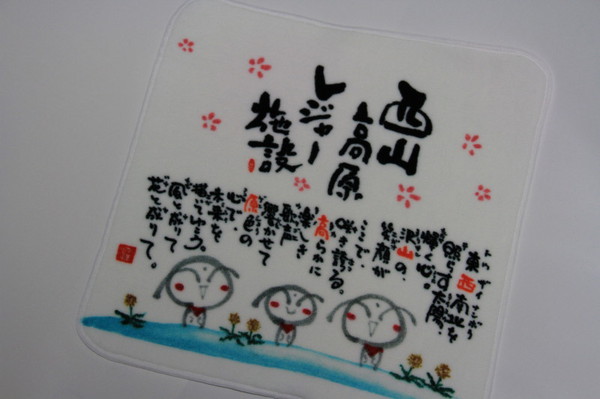 西山
高原
レジャー
施設
東西南北を
照らす太陽。
輝く心。
沢山の、
笑顔が
ここで、
咲き誇る。
高らかに
楽しき
歌声
響かせて
原色の
心で、
未来を
風と成りて
花と成りて。